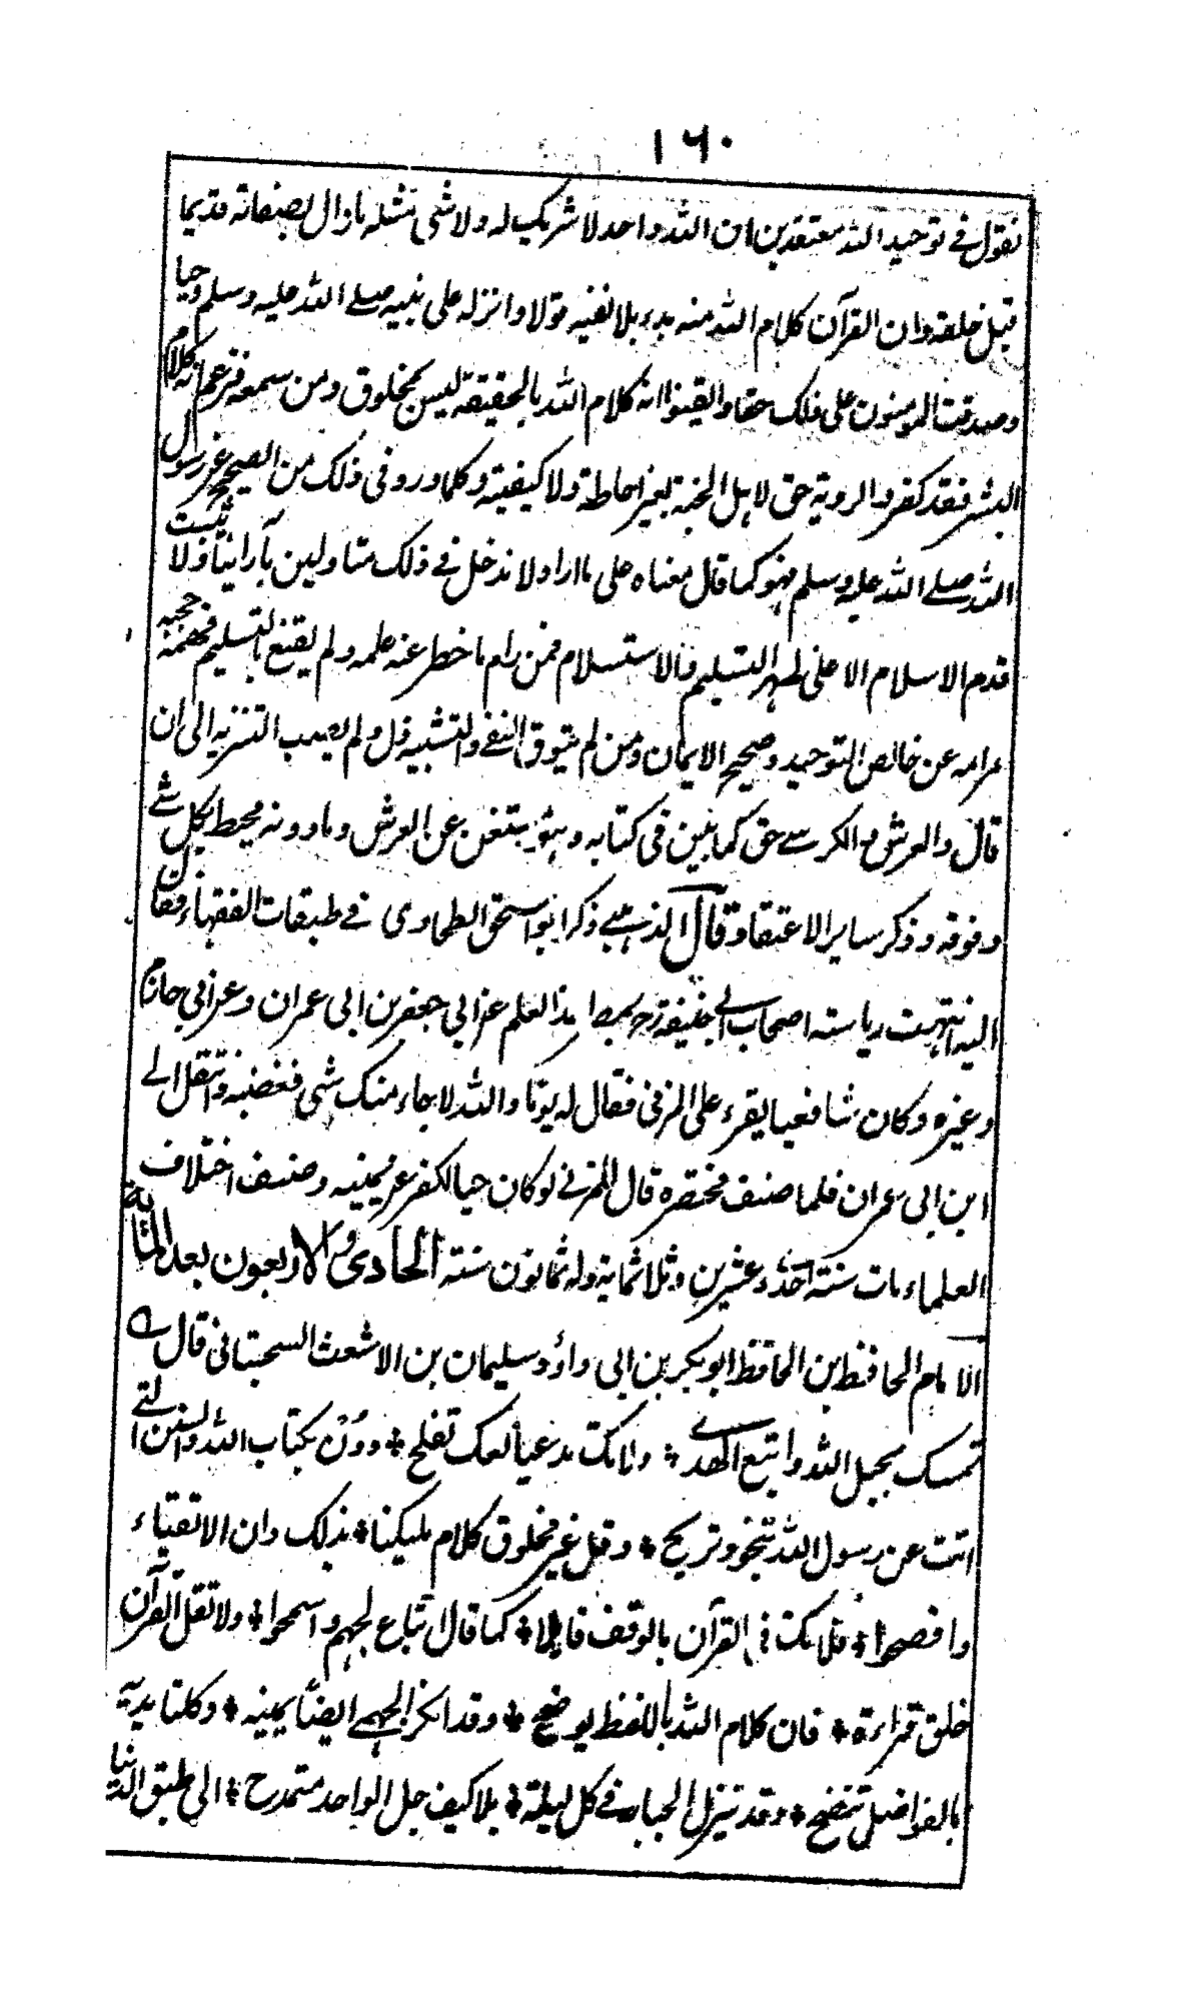 ١٦٠
نقول فى توحيد الله معتقدين ان الله واحد لا شريك له ولا شى مثله ما زال بصفاته قديما
قبل خلقه وان القرآن كلام الله منه بدء بلا كيفية قولا وانزله على نبيه صلے الله عليه وسلم وحيا
وصدقت المومنون على ذلك حقا وايقنوا انه كلام الله بالحقيقة ليس بمخلوق ومن سمعه فزعم انه كلام
البشر فقد كفر والروية حق لاهل الجنة بغير احاطة ولا كيفية وكلما ورد فى ذلك من الصحيح عن رسول
الله صلے الله عليه وسلم فهو كما قال معناه على ما اراد لا ندخل فى ذلك متاولين بآرائنا ولا تثبت
قدم الاسلام الا على ظهر التسليم والاستسلام فمن رام ما خطر عنه علمه ولم يقنع بالتسليم فهمه حجبه
مرامه عن خالص التوحيد وصحيح الايمان ومن لم يتوق النفے والتشبيه زل ولم يصب التنزيه الى ان
قال والعرش والكرسے حق كما بين فى كتابه وهو مستغن عن العرش وما دونه محيط بكل شے
وفوقه وذكر ساير الاعتقاد وقال الذهبے ذكر ابو اسحق الطحاوى فے طبقات الفقهاء فقال
اليه انتهت رياسته اصحاب ابے حنيفة رح بمصر اخذ العلم عن ابي جعفر بن ابى عمران وعن ابي حازم
وغيره وكان شافعيا يقرء على المزنى فقال له يوما والله لا جاء منك شى فغضب وانتقل الے
ابن ابى عمران فلما صنف مختصره قال المزنے لو كان حيا لكفر عن يمينه وصنف اختلاف
العلماء مات سنة احدى وعشرين وثلاثمائة وله ثمانون سنة الحادى والاربعون بعد المائة
الامام الحافظ ابن الحافظ ابو بكر بن ابى داؤد سليمان بن الاشعث السجستانى قال ه
تمسك بحبل الله واتبع الهدے * ولا تك بدعيا لعلك تفلح * ودُنْ بكتاب الله والسنن التے
اتت عن رسول الله تنجو وتربح * وقل غير مخلوق كلام مليكنا * بذلك دان الاتقياء
وافصحوا * فلا تك فى القرآن بالوقف قايلا * كما قال اتباع لجهم واسمحوا * ولا تقل القرآن
خلق قراءة * فان كلام الله باللفظ يوضح * وقد انكر الجهمے ايضا يمينه * وكلتا يديه
بالفواضل تنفح * وقد ينزل الجبار فے كل ليلة * بلا كيف جل الواحد متمدح * الى طبق الدنيا